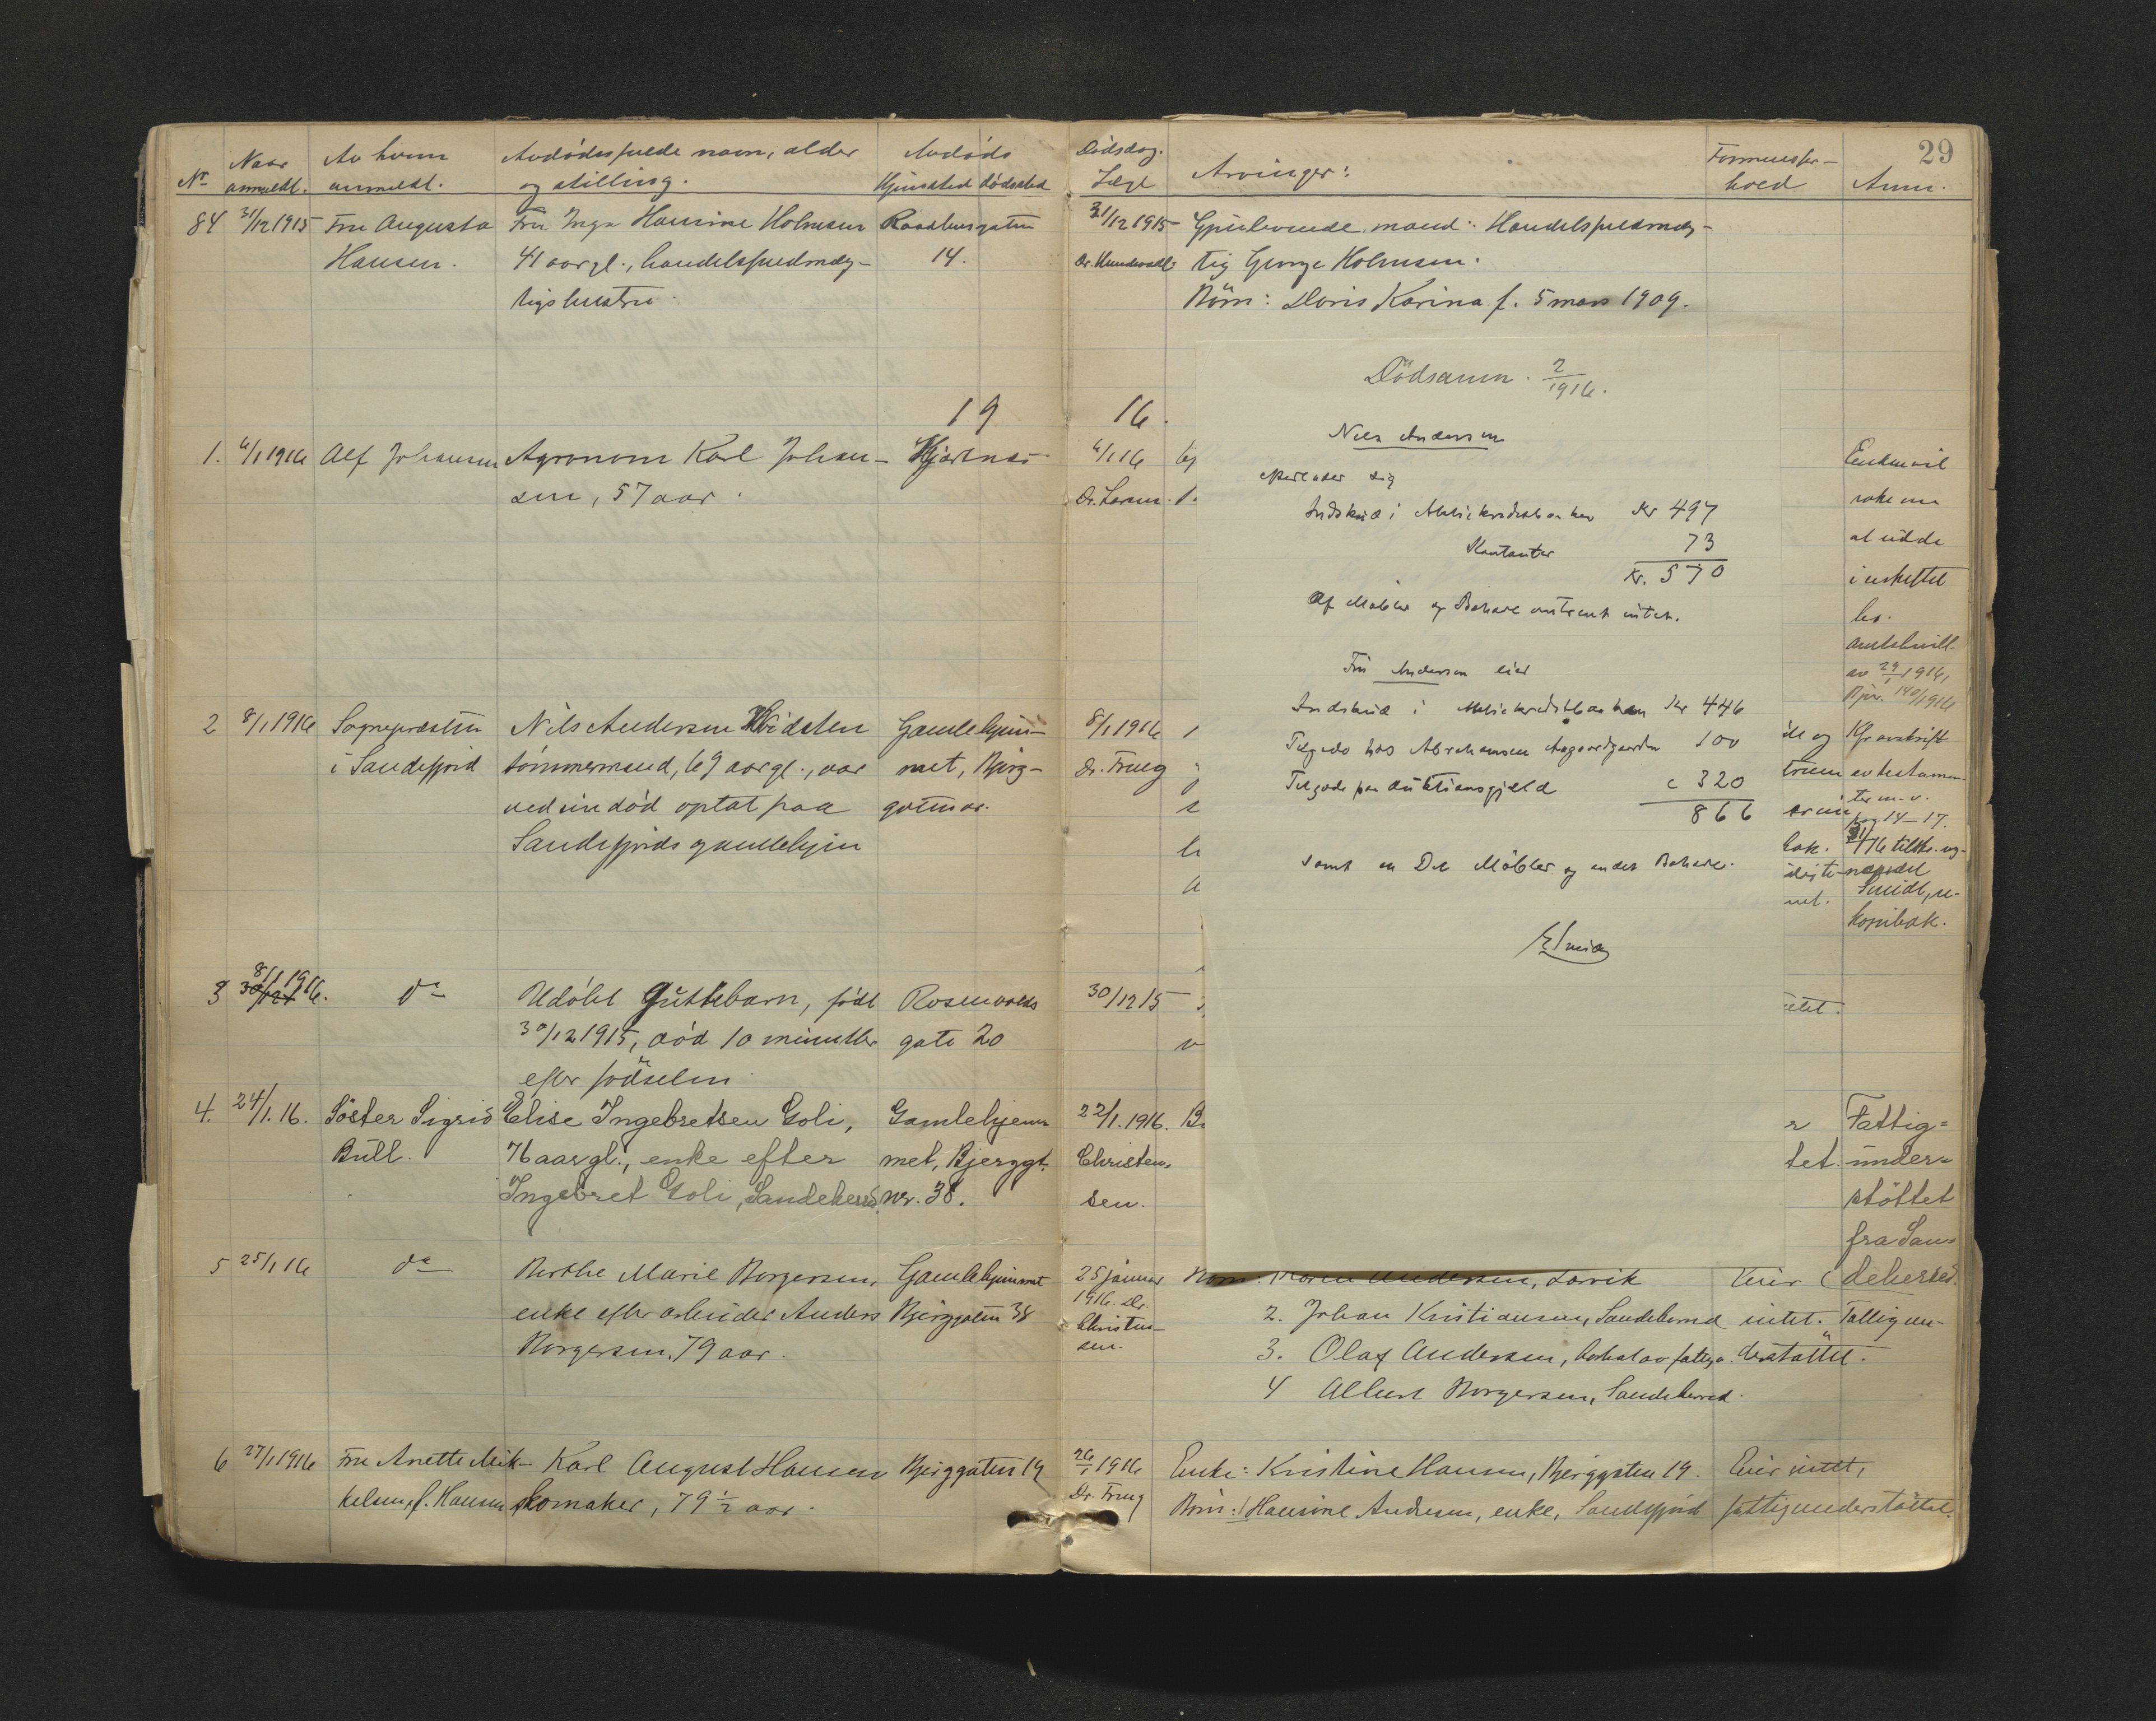 29
Nr. Naar anmeldt. Av hvem anmeldt. Avdødes fulde navn, alder og stilling. Avdøds Hjemsted dødssted Dødsdag. Læge Arvinger: Formuesforhold Anm.
84 31/12 1915 Fru Augusta
Hansen.
Fru Inga Hansine Holmsen
41 aar gl., handelsfuldmæg-
tigs hustru.
Raadhusgaten
14.
31/12 1915
Gjenlevende mand: Handelsfuldmæg-
tig George Holmsen.
Börn: Doris Karina f. 5 mars 1909.
19 16.
1. 6/1 1916 Alf Johansen
Agronom Karl Johan-
sen, 57 aar.
Hjertnes
6/1 16
Dr.
at
i uskiftet
bo.
av 29/1 1916,
140/1916
2 8/1 1916 Sognepresten
i Sandefjord
Nils Andersen Hvidsten
tömmermand, 69 aar gl., var
ved sin død optat paa
Sandefjords gamlehjem
Gamlehjem-
met, Bjerg-
gaten
8/1 1916
Dr.
de og
avskrift
av testamen-
te
14-17.
kopibok.
3 8/1 1916. 30/12
do
Udöbt Guttebarn, född
30/12 1915, död 10 minutter
efter födselen
Rosenvolds
gate 20
30/12 15
4. 24/1. 16. Söster Sigrid
Bull.
Elise Ingebretsen Goli,
76 aar gl., enke efter
Ingebret Goli, Sandeherred.
Gamlehjem
met, Bjerggt.
nr. 38.
22/1. 1916.
Christen-
sen.
tet.
Fattig=
under=
støttet
fra San=
deherred.
5 25/1 16 do
Berthe Marie Borgersen,
enke efter arbeider Anders
Borgersen, 79 aar.
Gamlehjemmet
Bjerggaten 38
25 januar
1916. Dr.
Christen-
sen.
Andersen, Larvik
2. Johan Kristiansen, Sandeherred
3. Olaf Andersen,
4 Albert Borgersen, Sandeherred.
Eier
intet. Fattigun-
derstøttet.
6 27/1 1916 Fru Anette Mik-
kelsen, f. Hansen
Karl August Hansen
Skomaker, 79 1/2 aar.
Bjerggaten 19
26/1 1916
Dr.
Enke: Kristine Hansen, Bjerggaten 19.
Börn: 1 Hansine Andersen, enke, Sandefjord
Eier intet,
fattigunderstøttet.
Dödsanm. 2/1916.
Nils Andersen
efterlader sig
Indskud i Aktiekreditbanken Kr 497
Kontanter 73
Kr. 570
Af Möbler og Bohave omtrent intet.
Fru Andersen eier
Indskud i Aktiekreditbanken Kr 446
Tilgode hos Abrahamsen 100
Tilgode paa Auktionsgjeld c 320
866
samt en Del Möbler og andet Bohave.